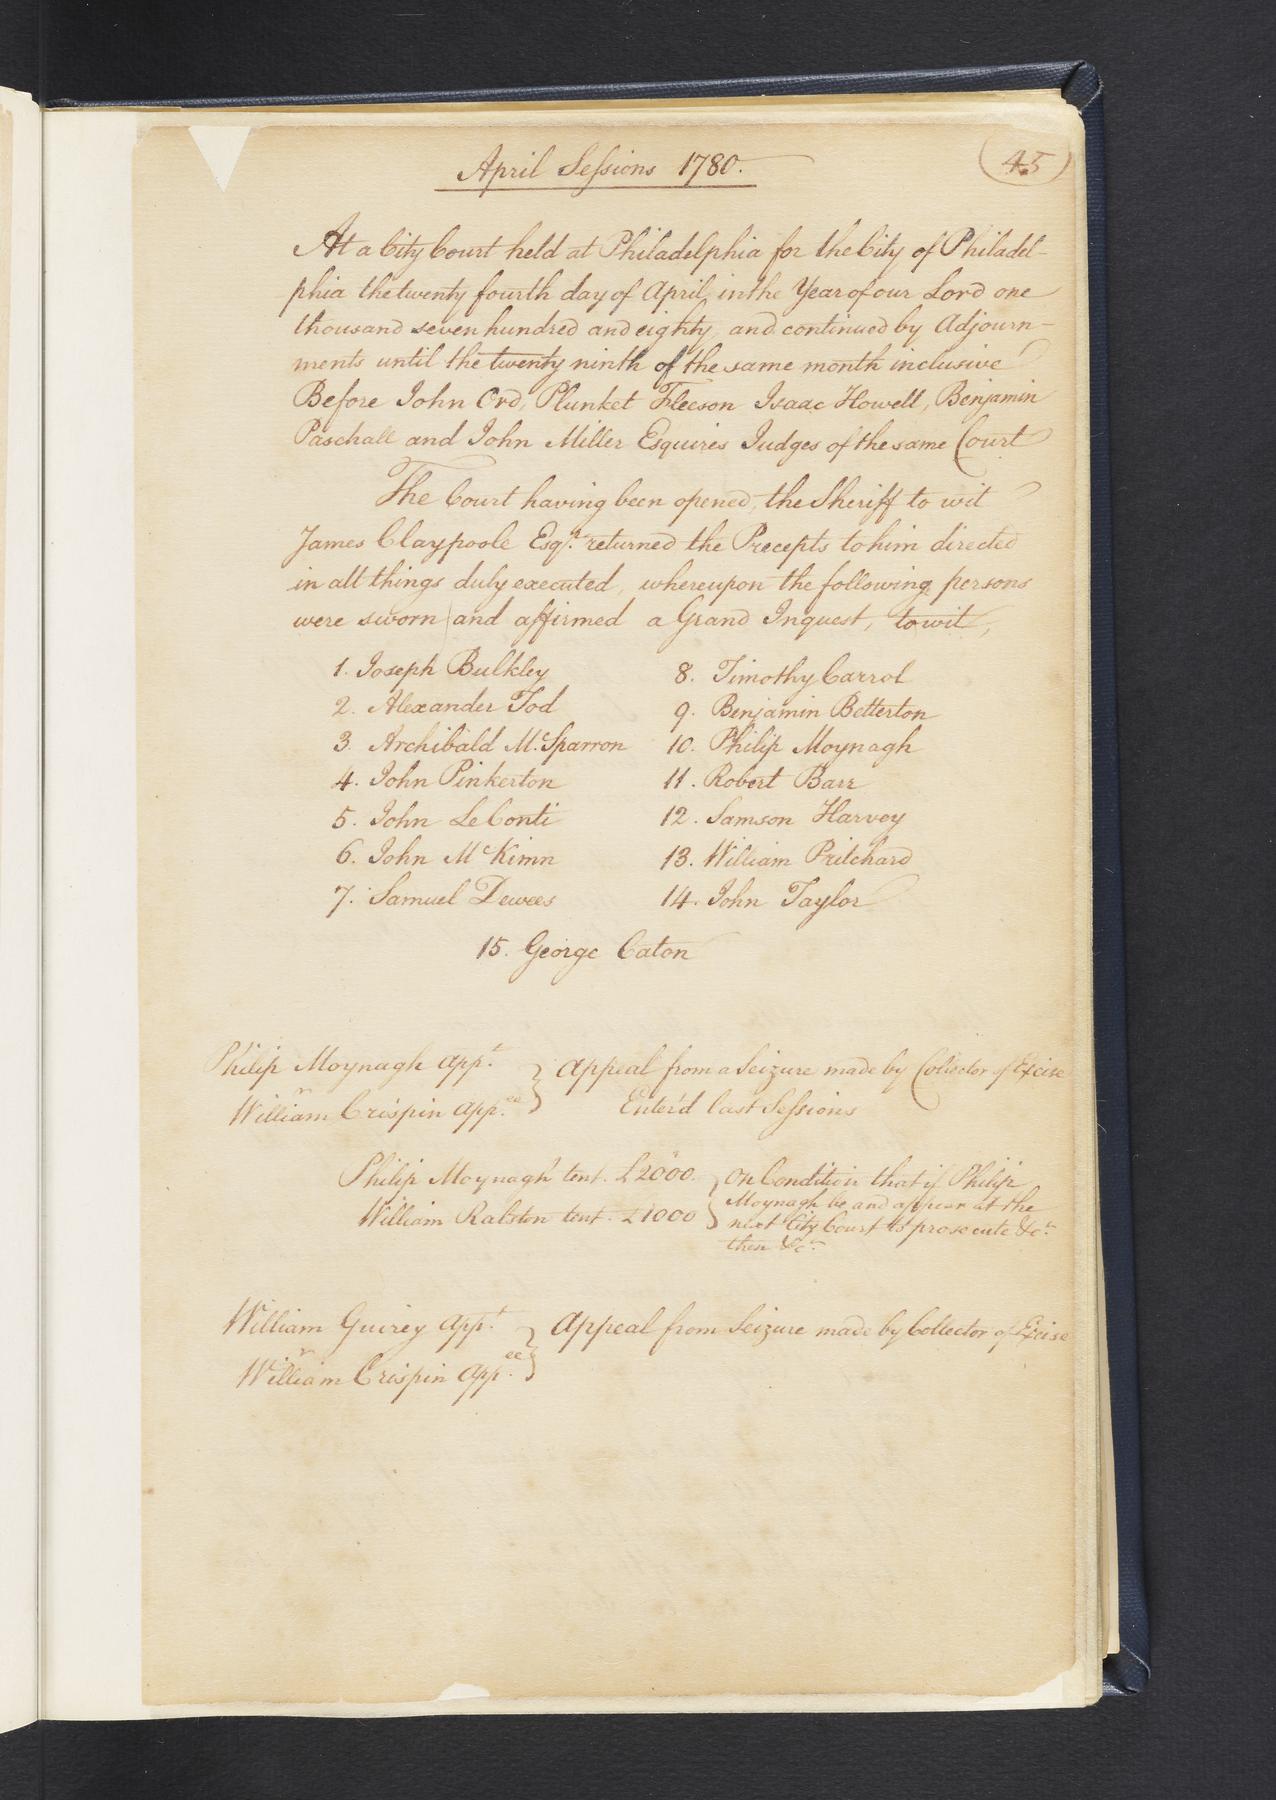 April Sessions 1780.
45
At a City Court held at Philadelphia for the City of Philadel-
phia the twenty fourth day of April, in the Year of our Lord one
thousand seven hundred and eighty and continued by Adjourn-
ments until the twenty ninth of the same month inclusive
Before John Ord, Plunket Fleeson Isaac Howell, Benjamin
Paschall and John Miller Esquires Judges of the same Court
The Court having been opened, the Sheriff to wit
James Claypoole Esqr. returned the Precepts to him directed
in all things duly executed, whereupon the following persons
were sworn and affirmed a Grand Inquest, to wit,
1. Joseph Bulkley
2. Alexander Tod
3. Archibald Mc.Sparron
4. John Pinkerton
5. John LeConti
6. John McKimn
7. Samuel Dewees
8. Timothy Carrol
9. Benjamin Betterton
10. Philip Moynagh
11. Robert Barr
12. Samson Harvey
13. William Pritchard
14. John Taylor
15. George Caton
Philip Moynagh Appt.
v
William Crispin Appee.
Appeal from a Seizure made by Collector of Excise
Enter'd last Sessions
Philip Moynagh tent. £2000.
William Ralston tent. £1000
On Condition that if Philip
Moynagh be and appear at the
next City Court to prosecute &c.
then &c.
William Guirey Appt.
v
William Crispin Appee.
Appeal from Seizure made by Collector of Excise